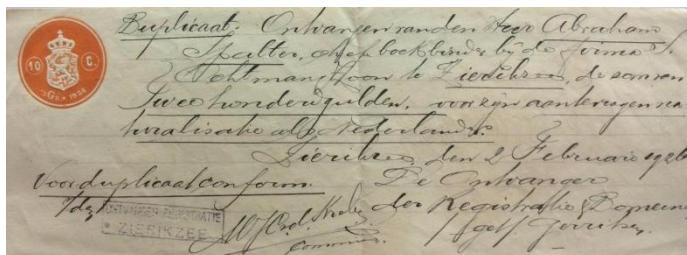 Duplicaat. Ontvangen van den Heer Abraham
Spalter, chef boekbinder bij de firma S.
Ochtman & Zoon te Zierikzee, de som van
Twee honderd gulden, voor zijn aantevragen na
turalisatie als Nederlander.
Zierikzee, den 2 Februari 1926
Voor duplicaat conform. De Ontvanger
der Registratie & Domeinen
ONTVANGER REGISTRATIE
ZIERIKZEE
get.
10 C.
1926